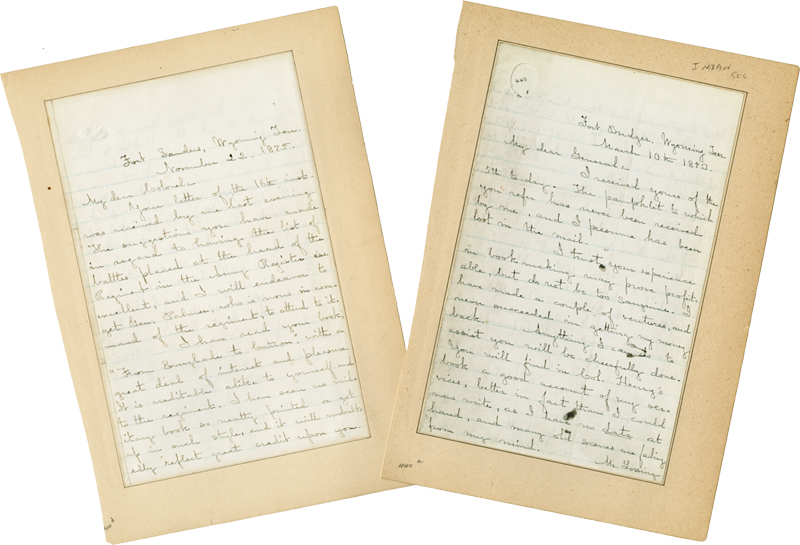 Fort Sanders, Wyoming Terr.
November 22, 1875.
My dear Colonel:-
Your letter of the 16th inst.
was received by me last evening.
The suggestion you have made
in regard to having the list of
battles placed at the head of the
Regiment in the Army Register is
excellent, and I will endeavor to
get Gen. Palmer, who is now in com-
mand of the regiment, to attend to it.
I have read your book,
"From Everglade to Cañon", with a
great deal of interest and pleasure.
It is creditable alike to yourself and
to the regiment. I have seen no mil-
itary book so neatly printed or got
up in such style, and it will undoubt-
edly reflect great credit upon you.
INMAN
SEC
Fort Bridger, Wyoming Terr.
March 10th
My dear General:-
I received yours of the
5th to-day. The pamphlet to which
you refer has never been received
by me, and I presume has been
lost in the mail.
I trust your experience
in book-making may prove profit-
able, but do not be too sanguine. I
have made a couple of ventures, and
never succeeded in getting my money
back. Anything I can do to
assist you will be cheerfully done.
You will find in Col. Henry's
book a good account of my ser-
vices, better in fact than I could
now write, as I have no data at
hand, and many old scenes are fading
from my mind.
Mr. Lossing